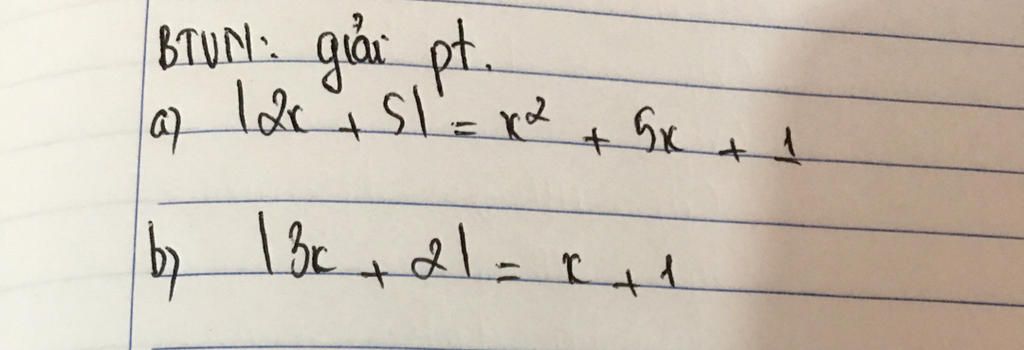 BTVN: giải pt.
a) |2x + 5| = x² + 5x + 1
b) |3x + 2| = x + 1